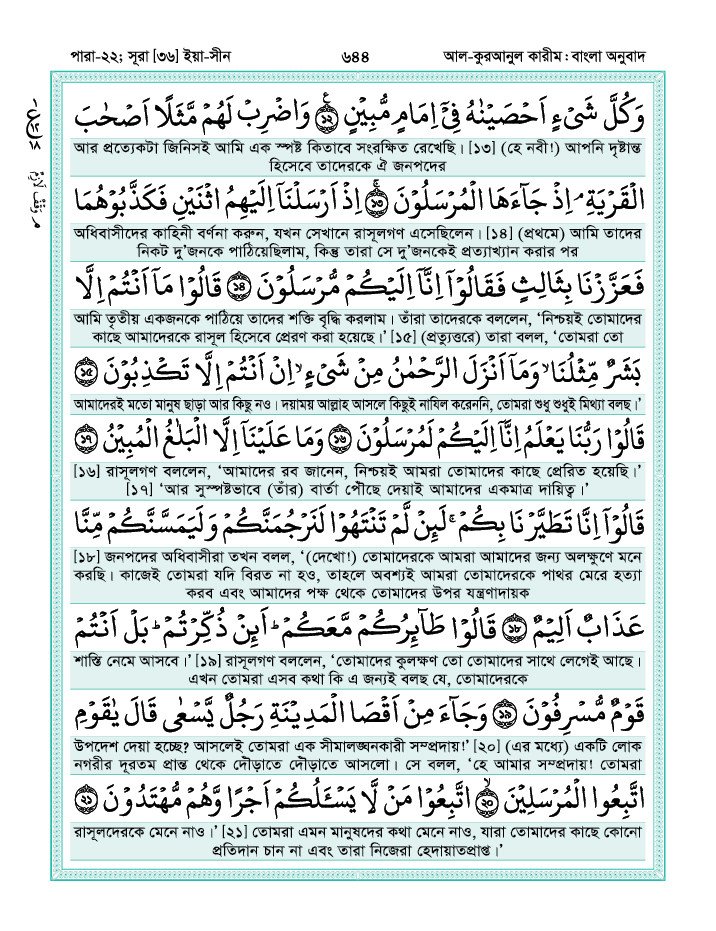 পারা-২২; সূরা [৩৬] ইয়া-সীন
৬৪৪
আল-কুরআনুল কারীম : বাংলা অনুবাদ
وَكُلَّ شَيْءٍ اَحْصَيْنٰهُ فِيْٓ اِمَامٍ مُّبِيْنٍ ۝১২ وَاضْرِبْ لَهُمْ مَّثَلًا اَصْحٰبَ
আর প্রত্যেকটা জিনিসই আমি এক স্পষ্ট কিতাবে সংরক্ষিত রেখেছি। [১৩] (হে নবী!) আপনি দৃষ্টান্ত
হিসেবে তাদেরকে ঐ জনপদের
الْقَرْيَةِ ۘ اِذْ جَآءَهَا الْمُرْسَلُوْنَ ۝১৩ اِذْ اَرْسَلْنَآ اِلَيْهِمُ اثْنَيْنِ فَكَذَّبُوْهُمَا
অধিবাসীদের কাহিনী বর্ণনা করুন, যখন সেখানে রাসূলগণ এসেছিলেন। [১৪] (প্রথমে) আমি তাদের
নিকট দু’জনকে পাঠিয়েছিলাম, কিন্তু তারা সে দু’জনকেই প্রত্যাখ্যান করার পর
فَعَزَّزْنَا بِثَالِثٍ فَقَالُوْٓا اِنَّآ اِلَيْكُمْ مُّرْسَلُوْنَ ۝১৪ قَالُوْا مَآ اَنْتُمْ اِلَّا
আমি তৃতীয় একজনকে পাঠিয়ে তাদের শক্তি বৃদ্ধি করলাম। তাঁরা তাদেরকে বললেন, ‘নিশ্চয়ই তোমাদের
কাছে আমাদেরকে রাসূল হিসেবে প্রেরণ করা হয়েছে।’ [১৫] (প্রত্যুত্তরে) তারা বলল, ‘তোমরা তো
بَشَرٌ مِّثْلُنَا ۙ وَمَآ اَنْزَلَ الرَّحْمٰنُ مِنْ شَيْءٍ ۙ اِنْ اَنْتُمْ اِلَّا تَكْذِبُوْنَ ۝১৫
আমাদেরই মতো মানুষ ছাড়া আর কিছু নও। দয়াময় আল্লাহ আসলে কিছুই নাযিল করেননি, তোমরা শুধু শুধুই মিথ্যা বলছ।’
قَالُوْا رَبُّنَا يَعْلَمُ اِنَّآ اِلَيْكُمْ لَمُرْسَلُوْنَ ۝১৬ وَمَا عَلَيْنَآ اِلَّا الْبَلٰغُ الْمُبِيْنُ ۝১৭
[১৬] রাসূলগণ বললেন, ‘আমাদের রব জানেন, নিশ্চয়ই আমরা তোমাদের কাছে প্রেরিত হয়েছি।’
[১৭] ‘আর সুস্পষ্টভাবে (তাঁর) বার্তা পৌছে দেয়াই আমাদের একমাত্র দায়িত্ব।’
قَالُوْٓا اِنَّا تَطَيَّرْنَا بِكُمْ ۚ لَئِنْ لَّمْ تَنْتَهُوْا لَنَرْجُمَنَّكُمْ وَلَيَمَسَّنَّكُمْ مِّنَّا
[১৮] জনপদের অধিবাসীরা তখন বলল, ‘(দেখো!) তোমাদেরকে আমরা আমাদের জন্য অলক্ষুণে মনে
করছি। কাজেই তোমরা যদি বিরত না হও, তাহলে অবশ্যই আমরা তোমাদেরকে পাথর মেরে হত্যা
করব এবং আমাদের পক্ষ থেকে তোমাদের উপর যন্ত্রণাদায়ক
عَذَابٌ اَلِيْمٌ ۝১৮ قَالُوْا طَآئِرُكُمْ مَّعَكُمْ ۖ اَئِنْ ذُكِّرْتُمْ ۖ بَلْ اَنْتُمْ
শাস্তি নেমে আসবে।’ [১৯] রাসূলগণ বললেন, ‘তোমাদের কুলক্ষণ তো তোমাদের সাথে লেগেই আছে।
এখন তোমরা এসব কথা কি এ জন্যই বলছ যে, তোমাদেরকে
قَوْمٌ مُّسْرِفُوْنَ ۝১৯ وَجَآءَ مِنْ اَقْصَا الْمَدِيْنَةِ رَجُلٌ يَّسْعٰى قَالَ يٰقَوْمِ
উপদেশ দেয়া হচ্ছে? আসলেই তোমরা এক সীমালঙ্ঘনকারী সম্প্রদায়!’ [২০] (এর মধ্যে) একটি লোক
নগরীর দূরতম প্রান্ত থেকে দৌড়াতে দৌড়াতে আসলো। সে বলল, ‘হে আমার সম্প্রদায়! তোমরা
اتَّبِعُوا الْمُرْسَلِيْنَ ۝২০ اتَّبِعُوْا مَنْ لَّا يَسْـَٔلُكُمْ اَجْرًا وَّهُمْ مُّهْتَدُوْنَ ۝২১
রাসূলদেরকে মেনে নাও।’ [২১] তোমরা এমন মানুষদের কথা মেনে নাও, যারা তোমাদের কাছে কোনো
প্রতিদান চান না এবং তারা নিজেরা হেদায়াতপ্রাপ্ত।’
وقف لازم